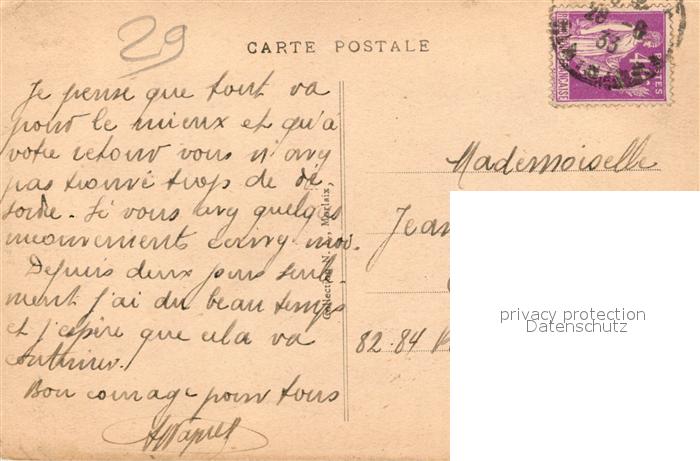 29
CARTE POSTALE
28
35
POSTES
Je pense que tout va
pour le mieux et qu'à
votre retour vous n'avez
pas trouvé trop de dé
sordre. Si vous avez quelques
mouvements écrivez moi.
Depuis deux jours seule
ment j'ai du beau temps
et j'espère que cela va
continuer.
Bon courage pour tous
Collection N. , Morlaix,
Mademoiselle
Jean
82-84
privacy protection
Datenschutz